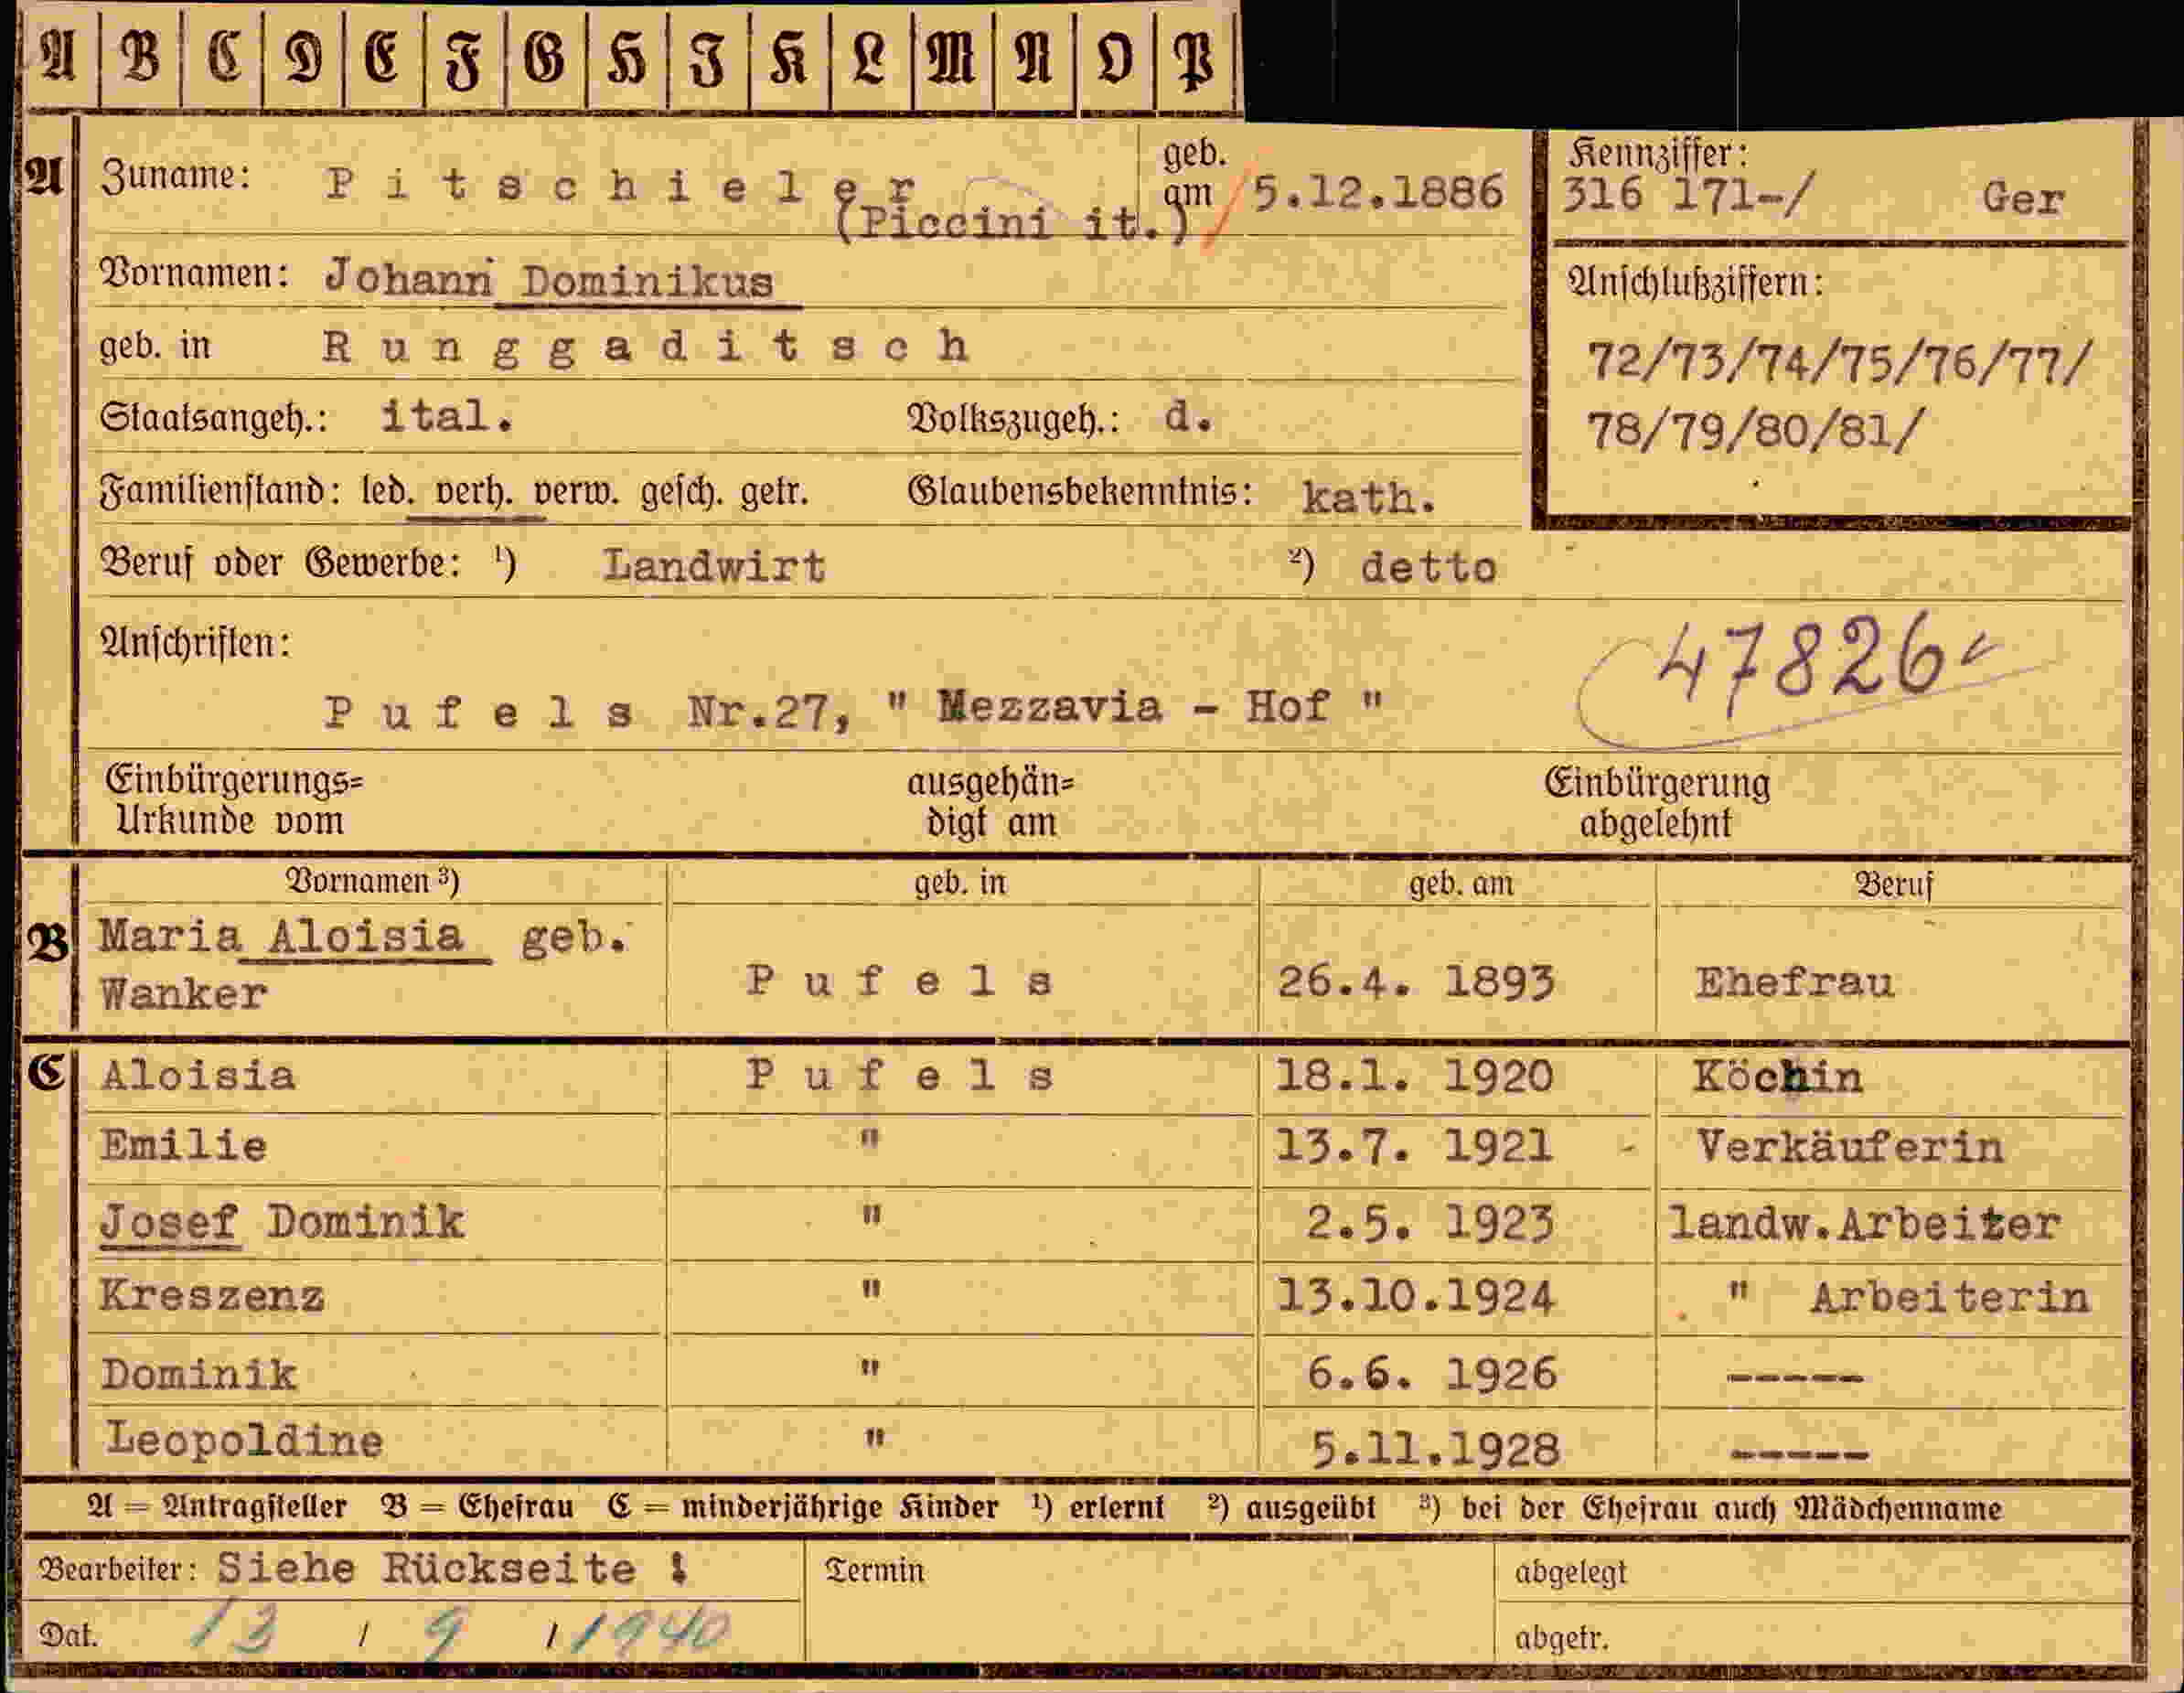 A B C D E F G H I K L M N O P
A Zuname: Pitschieler geb. am 5.12.1886
(Piccini it.)
Kennziffer:
316 171-/ Ger
Vornamen: Johann Dominikus
Anschlußziffern:
geb. in Runggaditsch
72/73/74/75/76/77/
78/79/80/81/
Staatsangeh.: ital. Volkszugeh.: d.
Familienstand: led. verh. verw. gesch. getr. Glaubensbekenntnis: kath.
Beruf oder Gewerbe: ¹) Landwirt ²) detto
Anschriften:
47826
Pufels Nr.27, " Mezzavia - Hof "
Einbürgerungs= ausgehän= Einbürgerung
Urkunde vom digt am abgelehnt
Vornamen ³) geb. in geb. am Beruf
B Maria Aloisia geb.
Wanker Pufels 26.4. 1893 Ehefrau
C Aloisia Pufels 18.1. 1920 Köchin
Emilie " 13.7. 1921 - Verkäuferin
Josef Dominik " 2.5. 1923 landw.Arbeiter
Kreszenz " 13.10.1924 " Arbeiterin
Dominik " 6.6. 1926 -----
Leopoldine " 5.11.1928 -----
A = Antragsteller B = Ehefrau C = minderjährige Kinder ¹) erlernt ²) ausgeübt ³) bei der Ehefrau auch Mädchenname
Bearbeiter: Siehe Rückseite ! Termin abgelegt
Dat. 13 / 9 / 1940 abgetr.